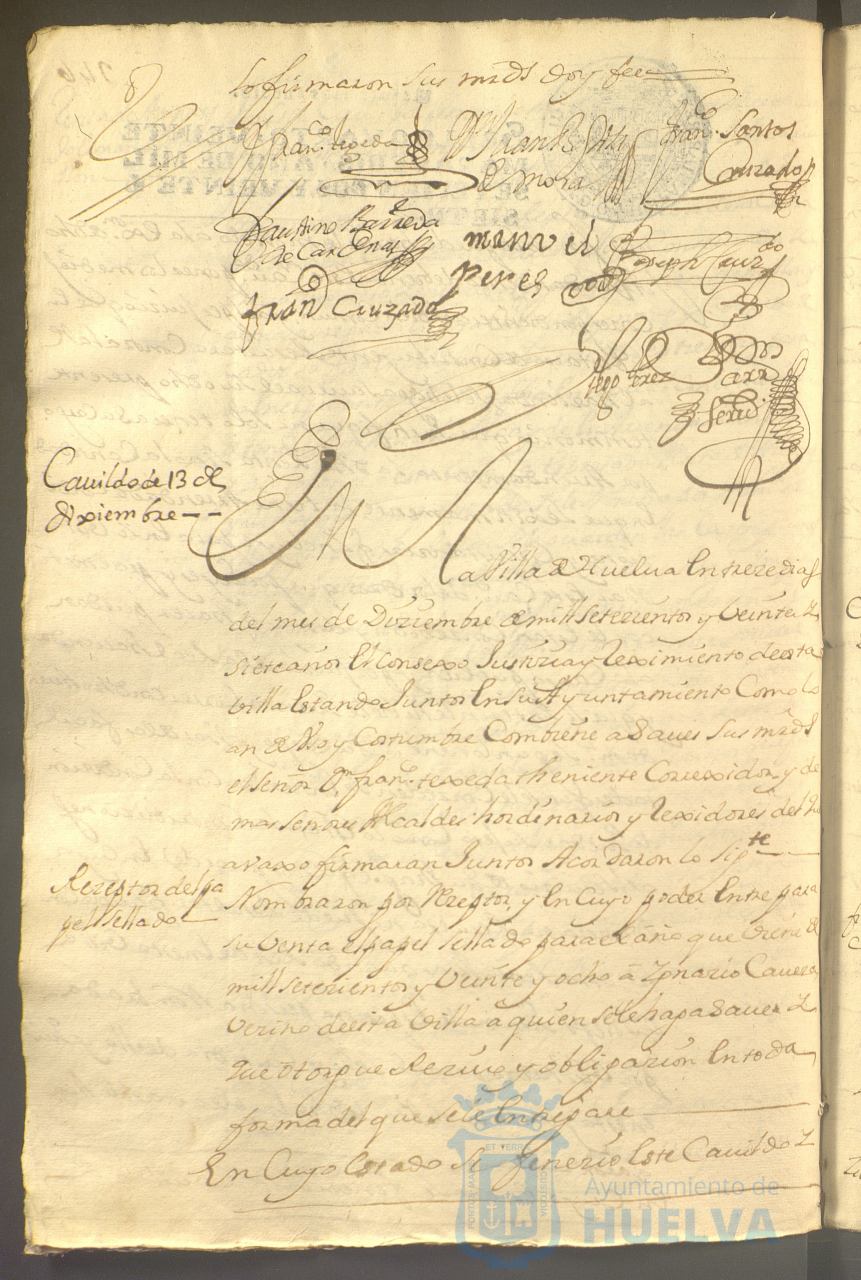 lo firmaron sus mrds doy fee
Franco. texeda
de Mora
Fran. Santos
Cruzado
Faustino Barreda
de Cardenas
manuel
perez
Joseph Cruzdo
Fran Cruzado
Diego Perez
serui
Cauildo de 13 de
diziembre
En la Villa de Huelua en treze dias
del mes de Diziembre de mill setezientos y Veinte y
siete años el Consexo Justizia y reximiento de esta
Villa estando Juntos en su Ayuntamiento Como lo
an de Vso y Costumbre Combiene a Sauer sus mrds
el señor Dn fran. texeda theniente Correxidor y de
mas señores Alcaldes hordinarios y rexidores del q
avaxo firmaran Juntos Acordaron lo sigte
Rezeptor del pa
pel sellado
Nombraron por Rezeptor y en Cuyo poder entre para
su Venta el papel sellado para el año que Viene de
mill setezientos y Veinte y ocho a Ygnazio Cauera
Vezino de esta Villa a quien se le haga Sauer y
que otorgue Reziuo y obligazion en toda
forma del que se le entregare
En Cuyo estado se fenezio este Cauildo y
Ayuntamiento de
HUELVA